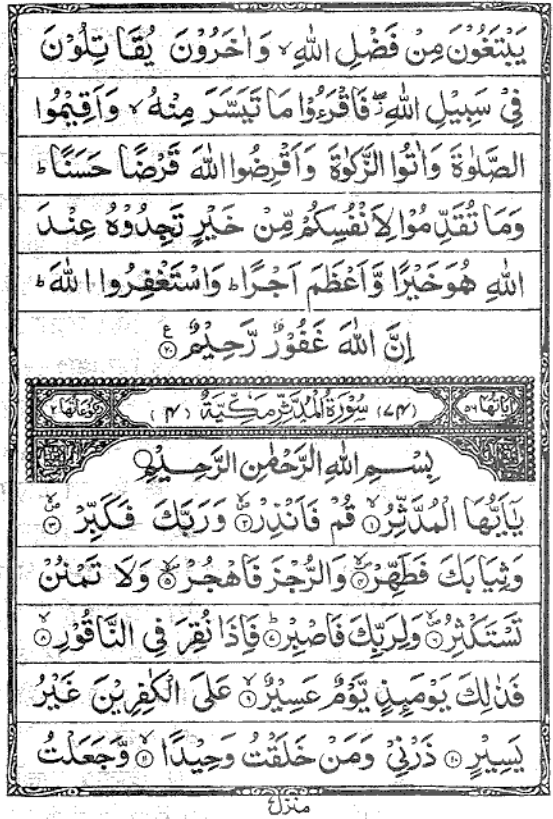 يَبْتَغُوْنَ مِنْ فَضْلِ اللهِ ۙ وَاٰخَرُوْنَ يُقَاتِلُوْنَ
فِيْ سَبِيْلِ اللهِ ۖ فَاقْرَءُوْا مَا تَيَسَّرَ مِنْهُ ۙ وَاَقِيْمُوا
الصَّلٰوةَ وَاٰتُوا الزَّكٰوةَ وَاَقْرِضُوا اللهَ قَرْضًا حَسَنًا ؕ
وَمَا تُقَدِّمُوْا لِاَنْفُسِكُمْ مِّنْ خَيْرٍ تَجِدُوْهُ عِنْدَ
اللهِ هُوَ خَيْرًا وَّاَعْظَمَ اَجْرًا ؕ وَاسْتَغْفِرُوا اللهَ ؕ
اِنَّ اللهَ غَفُوْرٌ رَّحِيْمٌ ﴿۲۰﴾ ع
اٰيَاتُهَا ۵۶ (۷۴) سُوْرَةُ الْمُدَّثِّرِ مَكِّيَّةٌ (۴) رُكُوْعَاتُهَا ۲
بِسْمِ اللهِ الرَّحْمٰنِ الرَّحِيْمِ
يٰۤاَيُّهَا الْمُدَّثِّرُ ﴿۱﴾ۙ قُمْ فَاَنْذِرْ ﴿۲﴾ۙ وَرَبَّكَ فَكَبِّرْ ﴿۳﴾ۙ
وَثِيَابَكَ فَطَهِّرْ ﴿۴﴾ۙ وَالرُّجْزَ فَاهْجُرْ ﴿۵﴾ۙ وَلَا تَمْنُنْ
تَسْتَكْثِرُ ﴿۶﴾ۙ وَلِرَبِّكَ فَاصْبِرْ ﴿۷﴾ؕ فَاِذَا نُقِرَ فِي النَّاقُوْرِ ﴿۸﴾ۙ
فَذٰلِكَ يَوْمَئِذٍ يَّوْمٌ عَسِيْرٌ ﴿۹﴾ۙ عَلَى الْكٰفِرِيْنَ غَيْرُ
يَسِيْرٍ ﴿۱۰﴾ ذَرْنِيْ وَمَنْ خَلَقْتُ وَحِيْدًا ﴿۱۱﴾ۙ وَّجَعَلْتُ
منزل